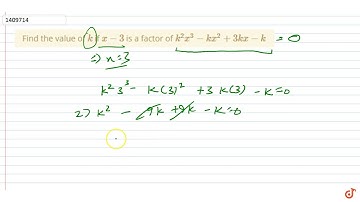 1409714
Find the value of k if x − 3 is a factor of k²x³ − kx² + 3kx − k = 0
⇒ x=3
k² 3³ − k(3)² + 3 k(3) − k=0
27 k² − 9k + 9k − k=0